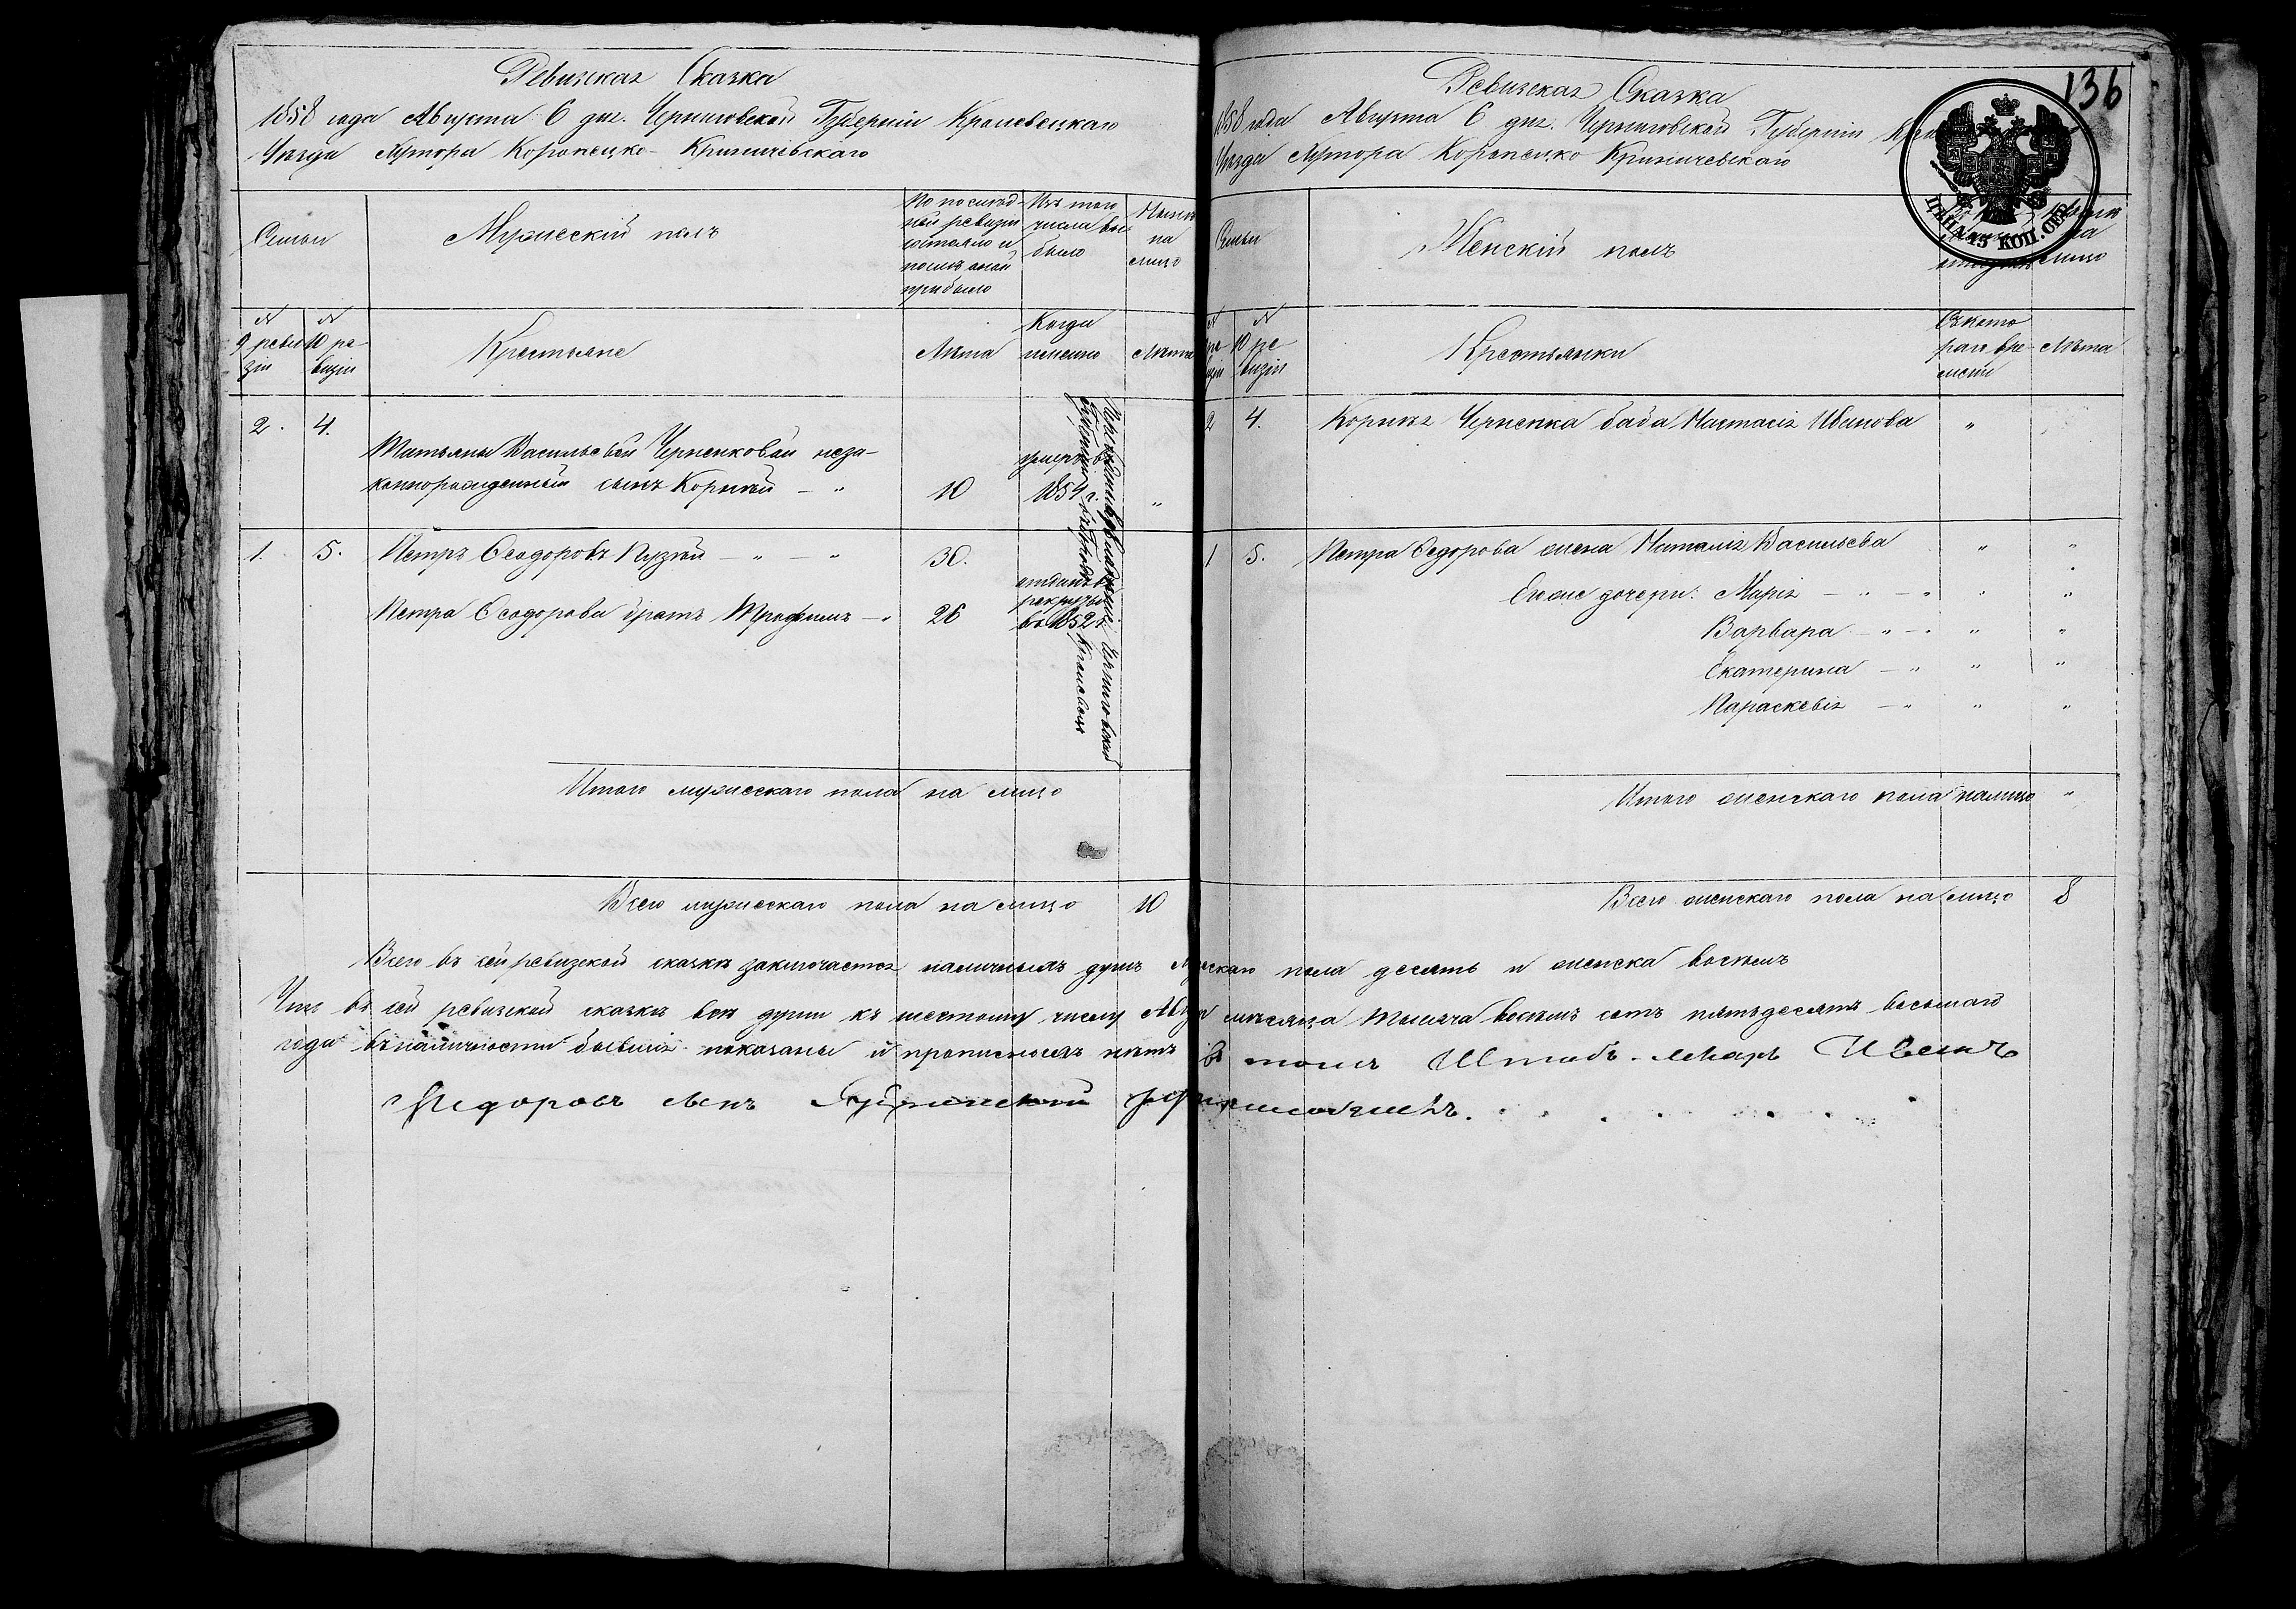 Ревизская Сказка
1858 года Августа 6 дня. Черниговской Губерніи Кролевецкаго
Уѣзда Хутора Коропецко-Криничевскаго
Семьи
Мужескій полъ
По послѣд-
ней ревизіи
состояло и
послѣ оной
прибыло
Изъ того
числа вы-
было
Нынѣ
на
лицо
№ 9 ревизіи
№ 10 ре-
визіи
Крестьяне
Лѣта
Когда
именно
Лѣта
2. 4.
Татьяны Васильевой Черненковой неза-
коннорожденный сынъ Корнѣй — „ 10 умеръ въ 1854 г. „
1. 5. Петръ Ѳеодоровъ Пузѣй — „ — „ 30.
Петра Ѳеодорова братъ Трофимъ — „ 26 отданъ въ рекруты въ 1852 г.
Итого мужескаго пола на лицо
Всего мужескаго пола на лицо 10
Ревизская Сказка
136
1858 года Августа 6 дня. Черниговской Губерніи
Уѣзда Хутора Коропецко Криничевскаго
ЦѢНА 15 КОП. СЕР.
Семьи
Женскій полъ
лицо
№ 10 ре
визіи
Крестьянки
Съ кото
раго вре
мени
Лѣта
2 4. Корнѣя Черненка баба Настасія Иванова „
1 5. Петра Ѳедорова жена Наталія Васильева „ „
Ею же дочери: Марія — „ — „ „ „
Варвара — „ — „ „ „
Екатерина — „ „ „
Параскевія — „ „ „
Итого женскаго пола налицо „
Всего женскаго пола на лицо 8
Всего въ сей ревизской сказкѣ заключается наличныхъ душъ мужскаго пола десять и женска восемь
Что въ сей ревизской сказкѣ всѣ души къ шестому числу Августа мѣсяца тысяча восемь сотъ пятьдесятъ восьмаго
года въ наличности бывшія показаны и прописныхъ нѣтъ въ томъ Штабъ-лѣкарь Иванъ
Ѳедоровъ сынъ